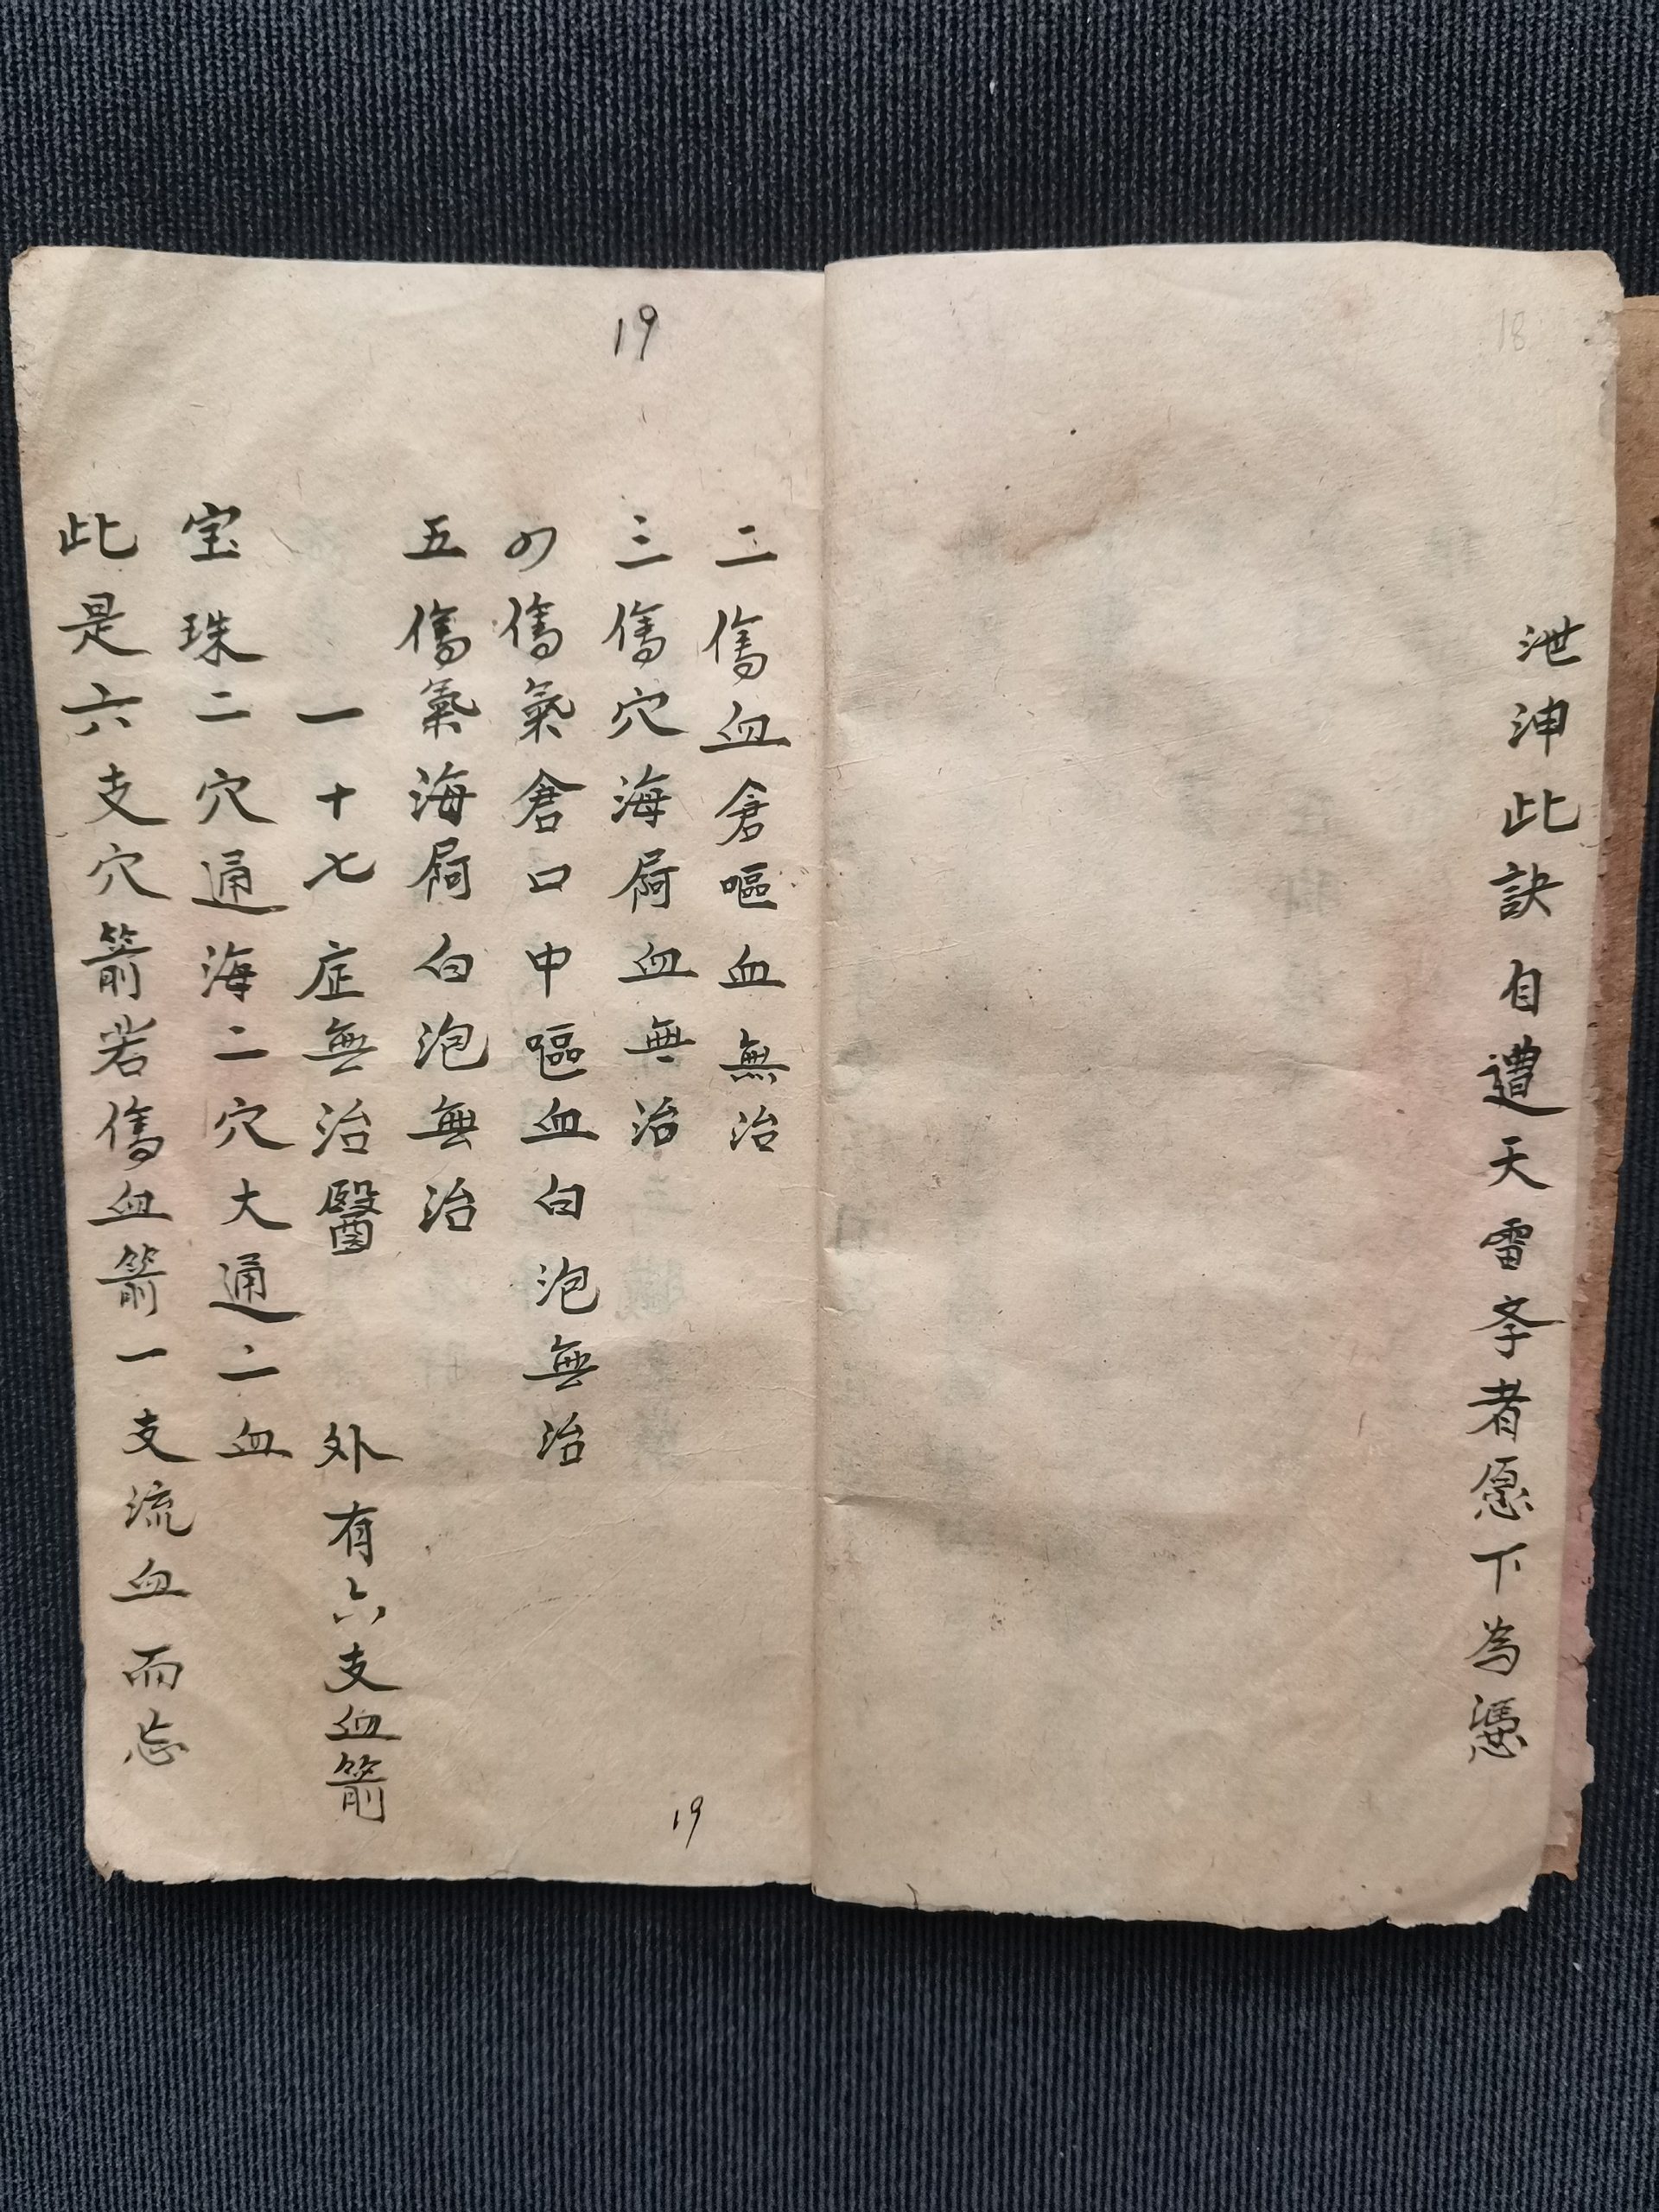 18
泄此訣自遭天雷者愿下為憑
19
二傷血倉嘔血無治
三傷穴海屙血無治
四傷氣倉口中嘔血白泡無治
五傷氣海屙白泡無治
一十七症無治醫 外有六支血箭
宝珠二穴通海二穴大通二血
此是六支穴箭若傷血箭一支流血而忘
19